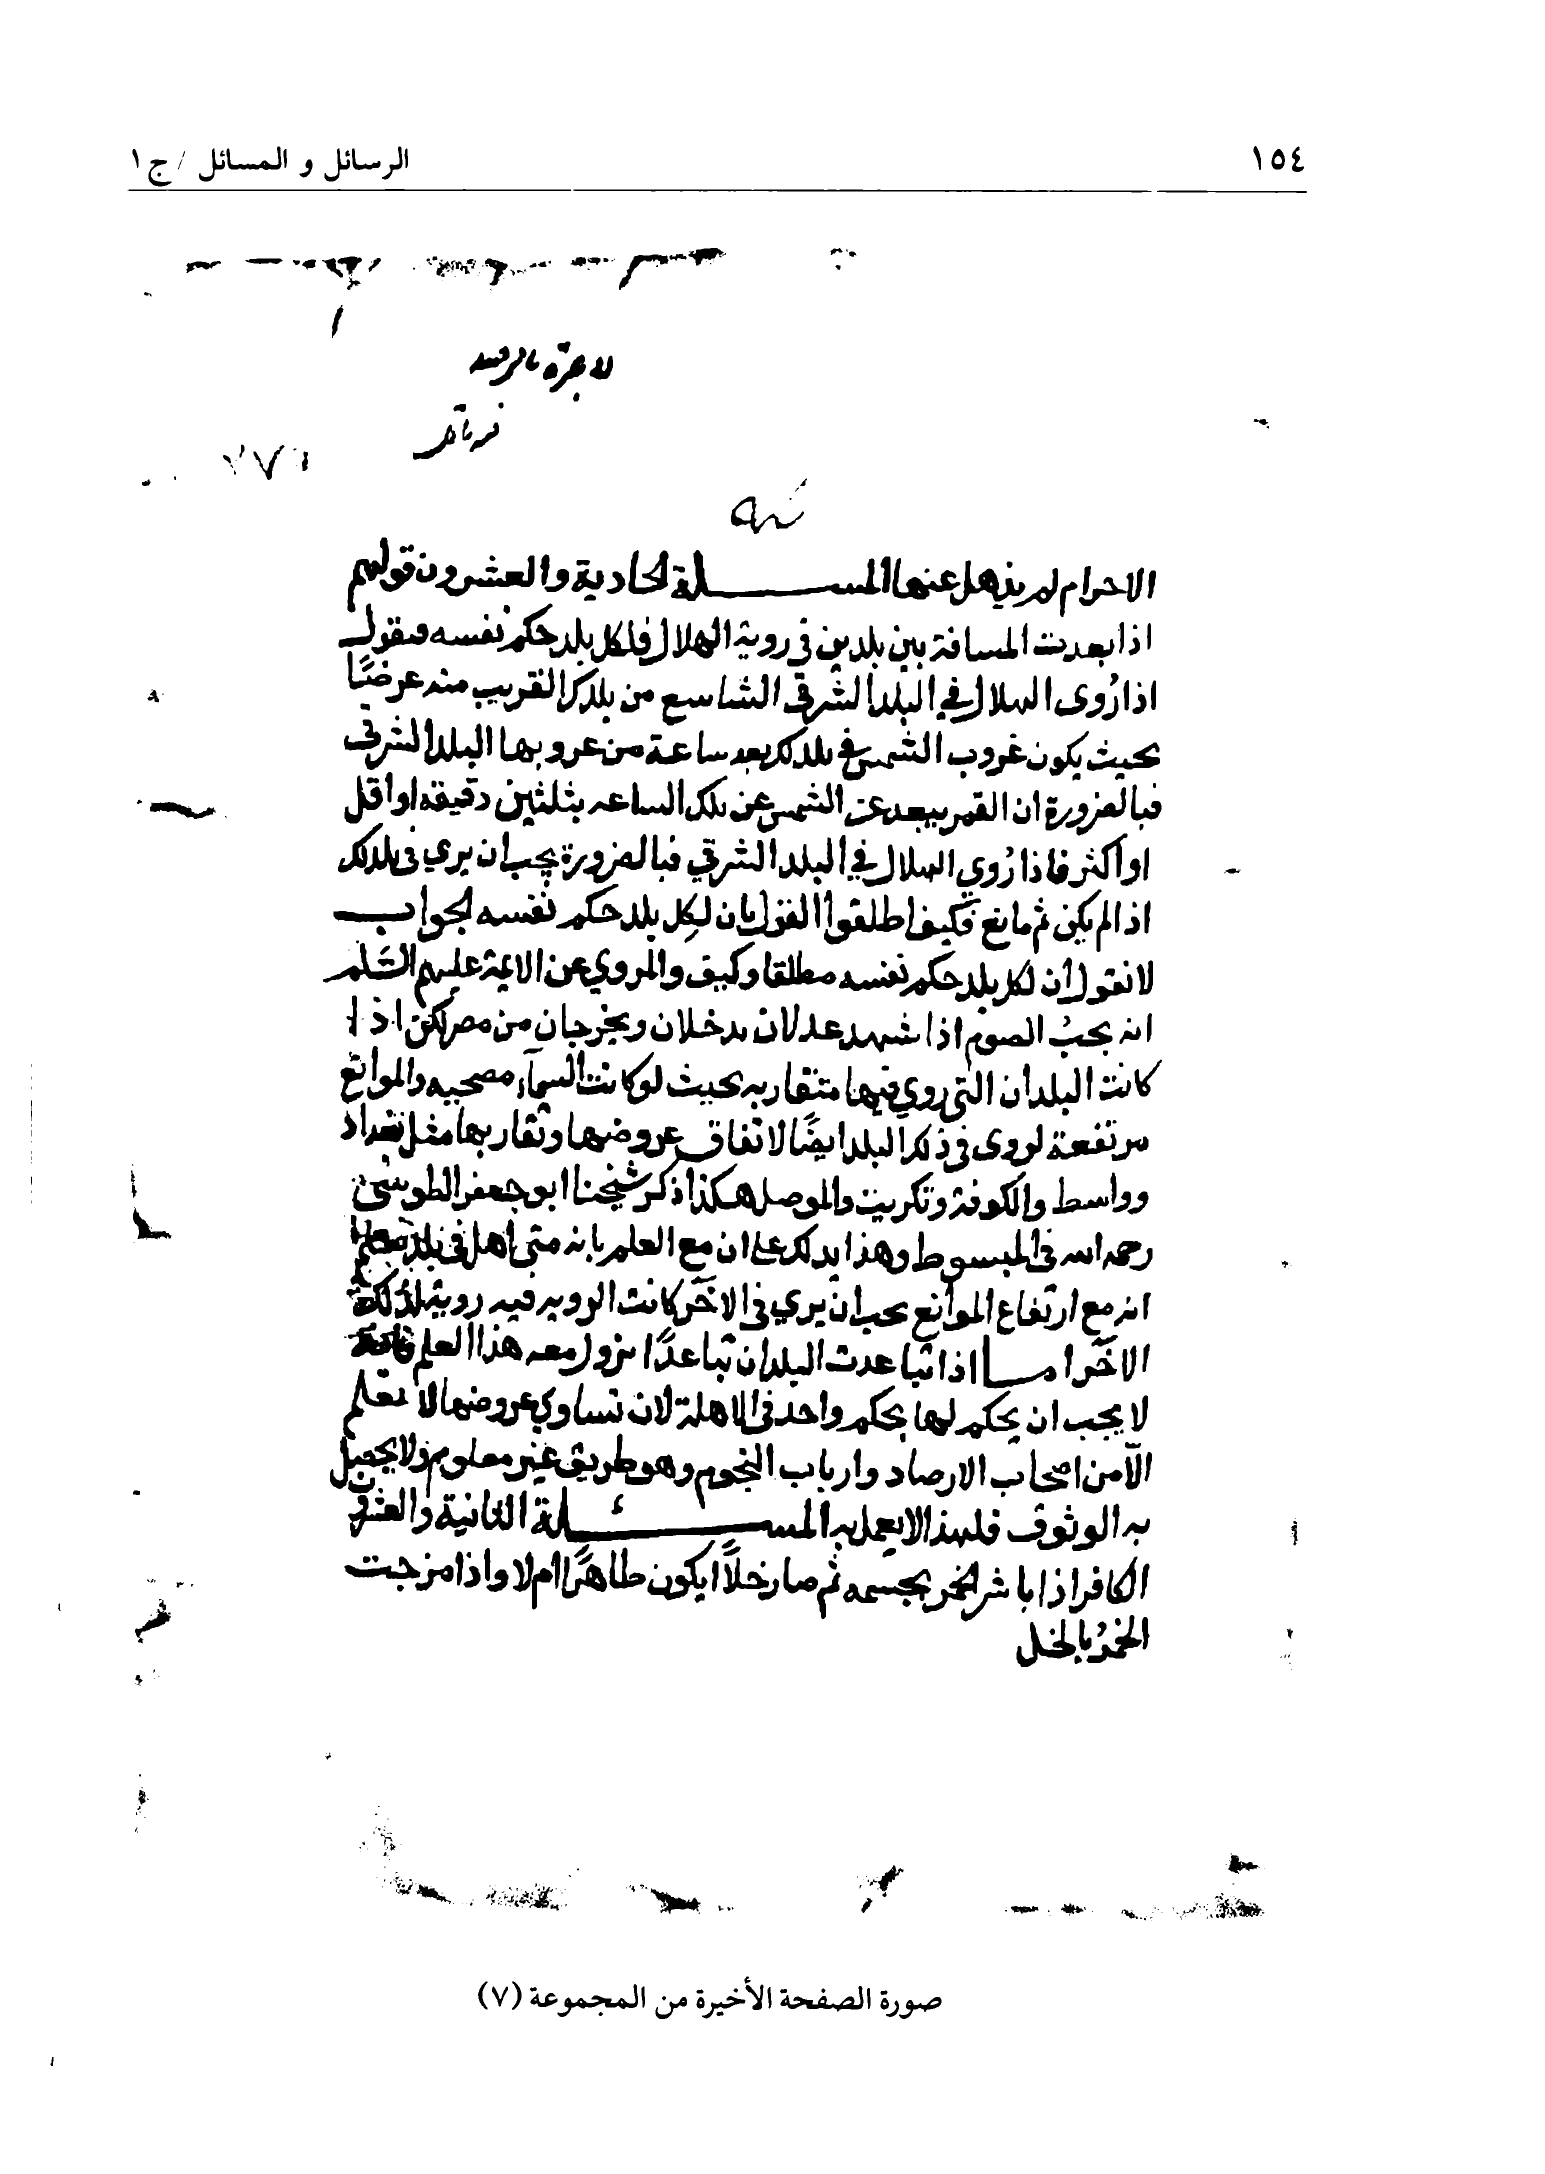 ١٥٤
الرسائل و المسائل / ج ١
الاحرام لم يذهل عنها المسلة الحادية والعشرون قولهم
اذا بعدت المسافة بين بلدين في روية الهلال فلكل بلد حكم نفسه فنقول
اذا رُوى الهلال في البلد الشرقي الشاسع من بلدك القريب منه عرضًا
بحيث يكون غروب الشمس في بلدك بعد ساعة من غروبها البلد الشرقي
فبالضرورة ان القمر يبعد عن الشمس عن تلك الساعه بثلثين دقيقه او اقل
او اكثر فاذا رُوي الهلال في البلد الشرقي فبالضرورة يجب ان يري في بلدك
اذا لم يكن ثم مانع فكيف اطلقوا القول بان لكل بلد حكم نفسه الجواب
لا نقول أن لكل بلد حكم نفسه مطلقا وكيف والمروي عن الايمة عليهم السَّلم
انه يجبُ الصوم اذا شهد عدلان يدخلان ويخرجان من مصر لكن اذا
كانت البلدان التي روي فيها متقاربه بحيث لو كانت السمآء مصحيه والموانع
مرتفعة لروى في ذلك البلد ايضًا لاتفاق عروضها وتقاربها مثل بغداد
وواسط والكوفة وتكريت والموصل هكذا ذكر شيخنا ابو جعفر الطوسي
رحمه الله في المبسوط وهذا يدلك على ان مع العلم بانه متى اهل في بلد
انه مع ارتفاع الموانع يجب ان يري في الآخر كانت الرويه فيه روية لذلك
الآخر اما اذا تباعدت البلدان تباعدًا يزول معه هذا العلم
لا يجب ان يحكم لها بحكم واحد في الاهلة لان تساوي عروضها لا تعلم
الّا من اصحاب الارصاد وارباب النجوم وهو طريق غير معلوم ولا يحصل
به الوثوق فلهذا لا يعمل به المسئلة الثانية والعشرون
الكافر اذا باشر الخمر بجسمه ثم صار خلاًّ ايكون طاهرًا ام لا واذا مزجت
الخمرُ بالخل
صورة الصفحة الأخيرة من المجموعة (٧)